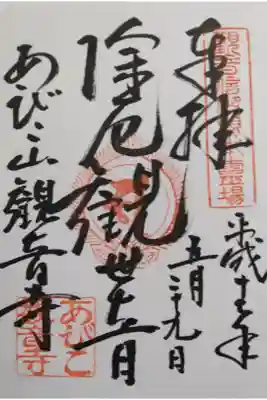 奉拝
平成
五月二十九日
除厄觀世音
あびこ山觀音寺
あびこ
観音寺